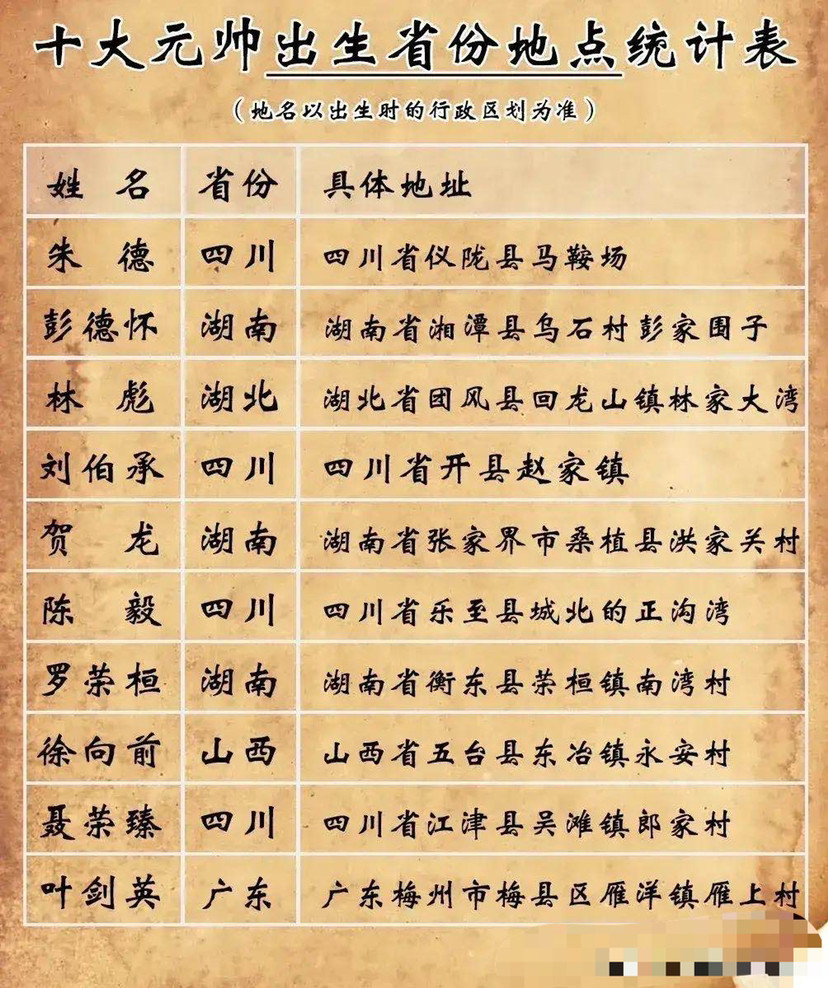 十大元帅出生省份地点统计表
（地名以出生时的行政区划为准）
姓 名 省份 具体地址
朱 德 四川 四川省仪陇县马鞍场
彭德怀 湖南 湖南省湘潭县乌石村彭家围子
林 彪 湖北 湖北省团风县回龙山镇林家大湾
刘伯承 四川 四川省开县赵家镇
贺 龙 湖南 湖南省张家界市桑植县洪家关村
陈 毅 四川 四川省乐至县城北的正沟湾
罗荣桓 湖南 湖南省衡东县荣桓镇南湾村
徐向前 山西 山西省五台县东冶镇永安村
聂荣臻 四川 四川省江津县吴滩镇郎家村
叶剑英 广东 广东梅州市梅县区雁洋镇雁上村